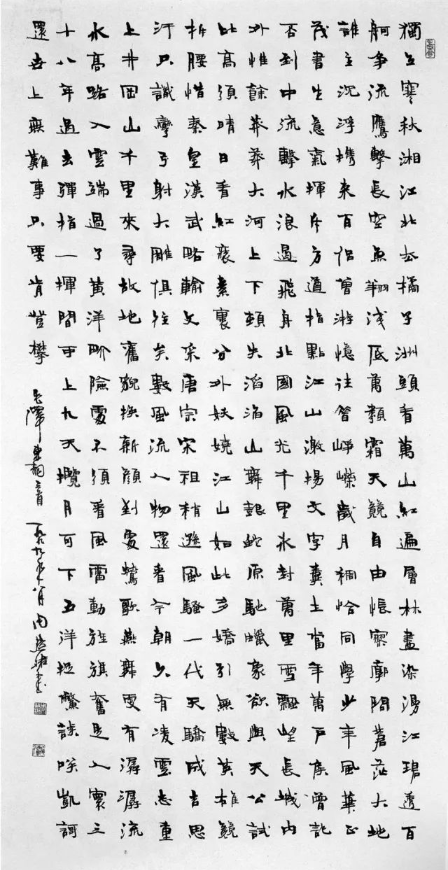 獨立寒秋湘江北去橘子洲頭看萬山紅遍層林盡染漫江碧透百
舸爭流鷹擊長空魚翔淺底萬類霜天競自由悵寥廓問蒼茫大地
誰主沉浮攜來百侶曾游憶往昔崢嶸歲月稠恰同學少年風華正
茂書生意氣揮斥方遒指點江山激揚文字糞土當年萬戶侯曾記
否到中流擊水浪遏飛舟北國風光千里冰封萬里雪飄望長城內
外惟餘莽莽大河上下頓失滔滔山舞銀蛇原馳蠟象欲與天公試
比高須晴日看紅裝素裹分外妖嬈江山如此多嬌引無數英雄競
折腰惜秦皇漢武略輸文采唐宗宋祖稍遜風騷一代天驕成吉思
汗只識彎弓射大雕俱往矣數風流人物還看今朝久有凌雲志重
上井岡山千里來尋故地舊貌換新顏到處鶯歌燕舞更有潺潺流
水高路入雲端過了黃洋界險處不須看風雷動旌旗奮是人寰三
十八年過去彈指一揮間可上九天攬月可下五洋捉鱉談笑凱歌
還世上無難事只要肯登攀
毛澤東詞三首